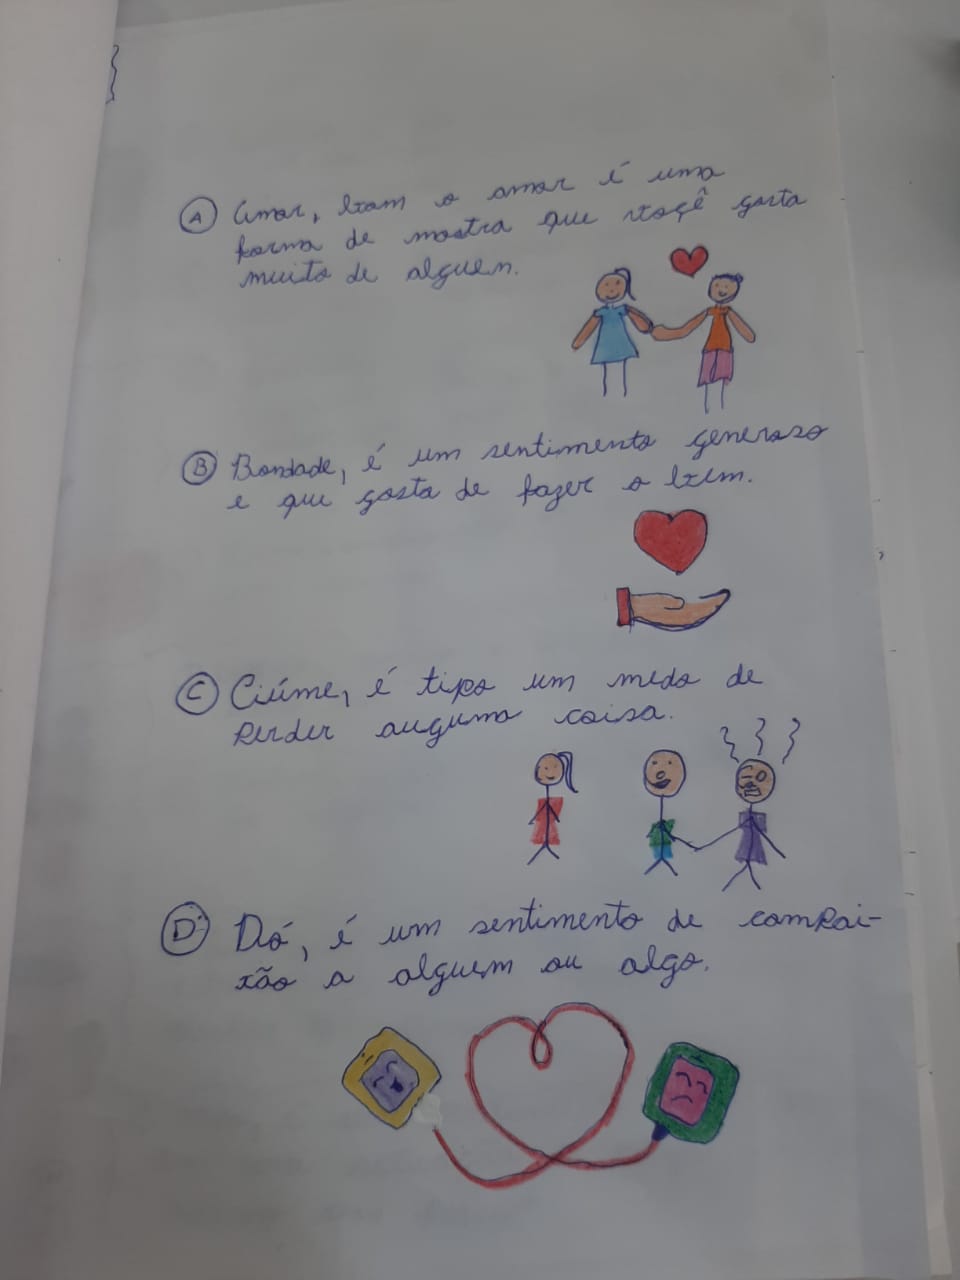 A Amor, bom o amor é uma
forma de mostra que voçê gosta
muito de alguen.
B Bondade, é um sentimento generoso
e que gosta de fazer o bem.
C Ciúme, é tipo um medo de
perder auguma coisa.
D Dó, é um sentimento de compai-
xão a alguem ou algo.